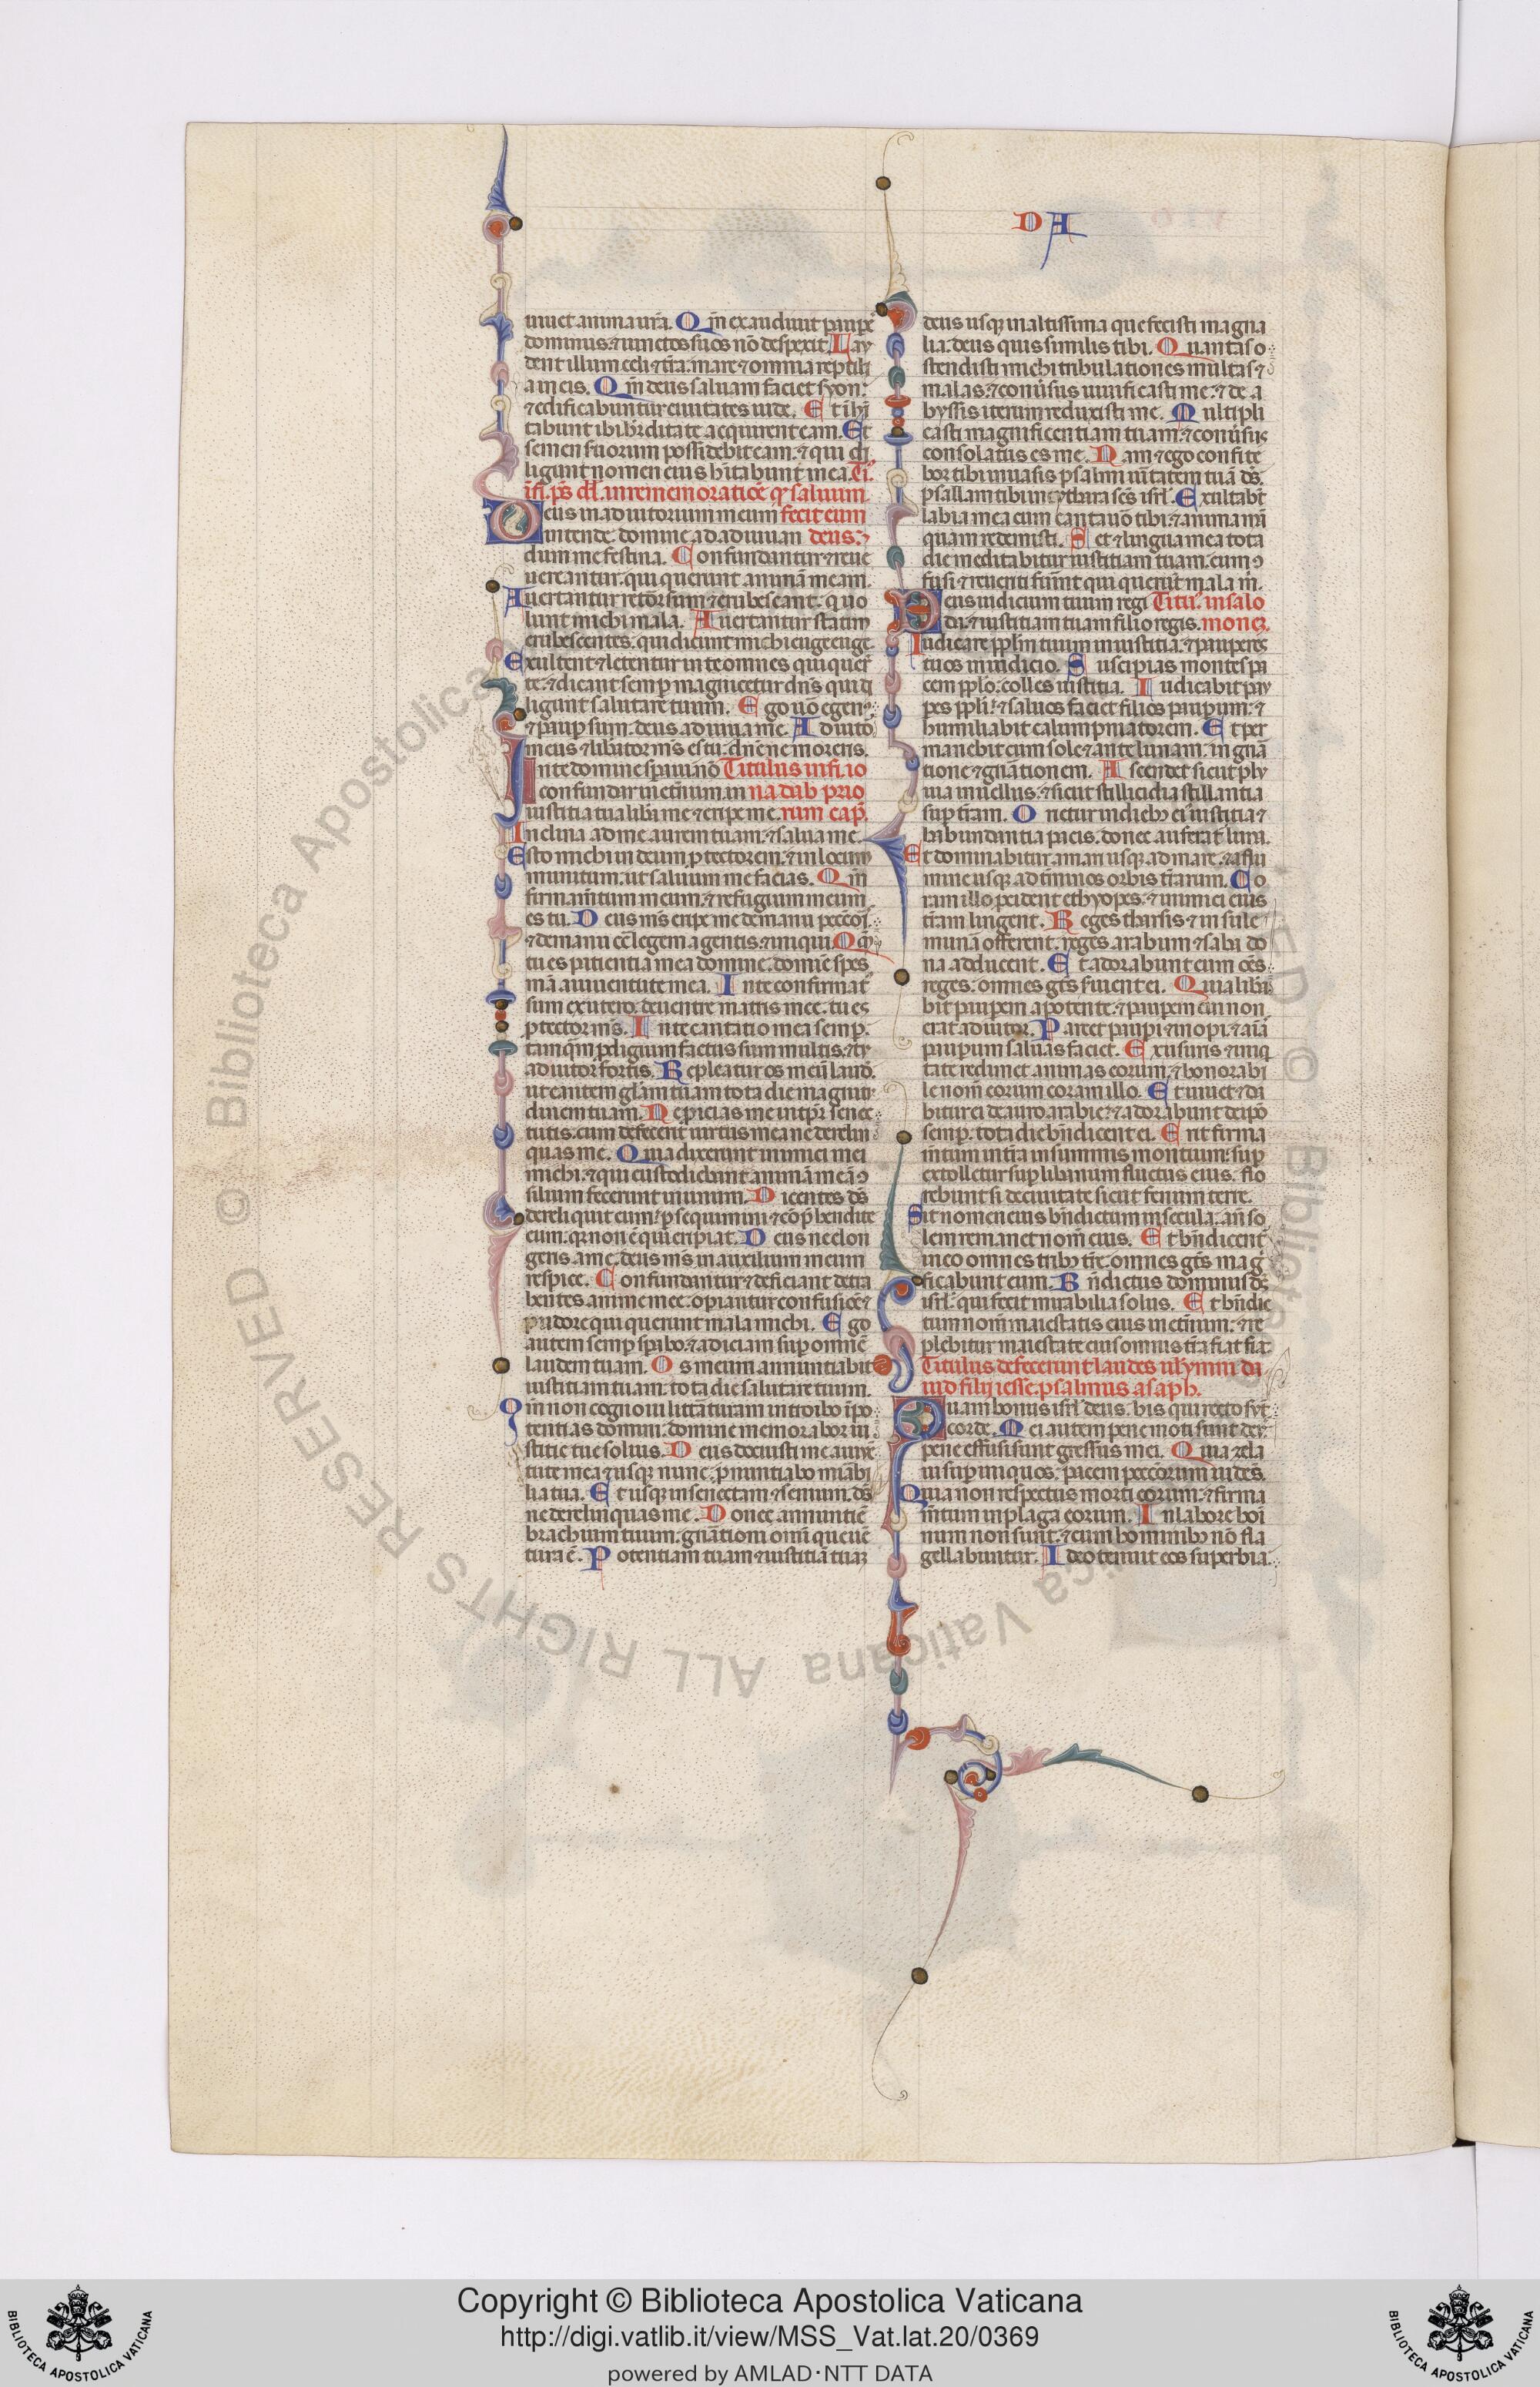 DA
uiuet anima ur̄a. Qm̄ exaudiuit paupe᷒
dominus. ⁊ uinctos suos nō despexit. Lau
dent illum celi ⁊ tr̄a. mare ⁊ omnia reptilia
in eis. Qm̄ deus saluam faciet syon:
⁊ edificabuntur ciuitates iude. Et in̄hi
tabunt ibi. hr̄ditate acquirent eam. Et
semen suorum possidebit eam. ⁊ qui di
ligunt nomen eius hītabunt in ea. Ti.
ī fi. ps dd. in rememoratiōē ꝙ saluum
Deus in adiutorium meum fecit eum
intende. domine ad adiuuan deus.
dum me festina. Confundantur ⁊ reue
uereantur. qui querunt animā meam.
Auertantur retrorsum ⁊ erubescant. q uo
lunt michi mala. Auertantur statim
erubescentes. qui dicunt michi euge euge
Exultent ⁊ letentur in te omnes qui quer̄
te. ⁊ dicant semꝑ magnicetur dn̄s qui di
ligunt salutare tuum. Ego uō egen⁹
⁊ paupꝑ sum. deus adiuua me. Adiutō
meus ⁊ liberator m̄s es tu. dn̄e ne moreris.
In te domine speraui nō Titulus in fi. io
confundar in eternum. in nadab prio
iustitia tua libera me ⁊ eripe me. rum cap̄.
Inclina ad me aurem tuam. ⁊ salua me.
Esto michi in deum ꝓtectorem. ⁊ in locum
munitum. ut saluum me facias. Qm̄
firmam̄tum meum. ⁊ refugium meum
es tu. Deus m̄s eripe me de manu pecc̄oı̄.
⁊ de manu c̄ legem agentis. ⁊ iniqui. Qm̄
tu es patientia mea domine. domīe spes
mā a iuuentute mea. In te confirmat᷒
sum ex utero. de uentre matris mee. tu es
ꝓtector m̄s. In te cantatio mea semꝑ.
tamqm̄ ꝓdigium factus sum multis. ⁊ tu
adiutor fortis. Repleatur os meū laudē.
ut cantem glām tuam tota die magnitu
dinem tuam. Ne ꝓicias me in tp̄r senec
tutis. cum defecerit uirtus mea ne derelin
quas me. Quia dixerunt inimici mei
michi. ⁊ qui custodiebant animā meā ꝯ
silium fecerunt in unum. Dicentes ds̄
dereliquit eum. ꝑsequimini ⁊ cōp̄hendite
eum. qz non ē qui eripiat. Deus ne elon
geris a me. deus m̄s in auxilium meum
respice. Confundantur ⁊ deficiant detra
hentes anime mee. opiantur confusiōē ⁊
pudore qui querunt mala michi. Ego
autem semꝑ sꝑabo. ⁊ adiciam suꝑ omnē
laudem tuam. Os meum annuntiabit
iustitiam tuam. tota die salutare tuum.
Qm̄ non cognoui litt̄aturam introibo ī po
tentias domini. domine memorabor iu
stitie tue solius. Deus docuisti me a iuuē
tute mea. ⁊ usqꝫ nunc. ꝓnuntiabo mirabi
lia tua. Et usqꝫ in senectam ⁊ senium. ds̄
ne derelinquas me. Donec annuntiē
brachium tuum. gn̄ationi omni que uē
tura ē. Potentiam tuam ⁊ iustitiā tuaꝫ
deus usqꝫ in altissima que fecisti magna
lia. deus quis similis tibi. Quantas o
stendisti michi tribulationes multas ⁊
malas. ⁊ conūsus uiuificasti me. ⁊ de a
byssis iterum reduxisti me. Multipli
casti magnificentiam tuam. ⁊ conūsus
consolatus es me. Nam ⁊ ego confite
bor tibi in uasis psalmi ūitatem tuā ds̄.
psallam tibi in cythara sc̄s isrl̄. Exultabt̄
labia mea cum cantauō tibi. ⁊ anima m̄a
quam redemisti. Set ⁊ lingua mea tota
die meditabitur iustitiam tuam. cum ꝯ
fusi ⁊ reueriti fuīnt qui querūt mala m̄.
Deus iudicium tuum regi Titu᷒. in salo
da. ⁊ iustitiam tuam filio regis. moneꝫ.
Iudicare ppl̄m tuum in iustitia. ⁊ pauperes
tuos in iudicio. Suscipiant montes pa
cem ppl̄o. ⁊ colles iustitia. Iudicabit pau
pes ppl̄i. ⁊ saluos faciet filios paupum. ⁊
humiliabit calumpniatorem. Et per
manebit cum sole ⁊ ante lunam. in gn̄a
tione ⁊ gn̄ationem. Ascendet sicut plu
uia in uellus. ⁊ sicut stillicidia stillantia
suꝑ tr̄am. Orietur in diebꝫ ei⁹ iustitia ⁊
habundantia pacis. donec auferat᷒ luna.
Et dominabitur a mari usqꝫ ad mare. ⁊ a flu
mine usqꝫ ad tm̄inos orbis tr̄arum. Co
ram illo ꝓcident ethyopes. ⁊ inimici eius
tr̄am lingent. Reges tharsis ⁊ insule
munā offerent. reges arabum ⁊ saba do
na adducent. Et adorabunt eum oēs
reges. omnes gēs ſuient ei. Quia liba
bit paupem a potente. ⁊ paupem cū non
erat adiutor. Parcet paupi ⁊ inopi. ⁊ aīa
paupum saluas faciet. Ex usuris ⁊ iniq
tate redimet animas eorum. ⁊ honorabi
le nom̄ eorum coram illo. Et uiuet ⁊ da
bitur ei de auro arabie. ⁊ adorabunt de ip̄o
semꝑ. tota die bn̄dicent ei. Erit firma
m̄tum in tr̄a in summis montium. suꝑ
extolletur suꝑ libanum fructus eius. flo
rebunt si de ciuitate sicut fenum terre.
Sit nomen eius bn̄dictum in secula. an̄ so
lem remanet nom̄ eius. Et bn̄dicent᷒
in eo omnes tribꝫ tr̄e. omnes gēs mag
ficabunt eum. Bn̄dictus dominus ds̄
isrl̄. qui fecit mirabilia solus. Et bn̄dic
tum nom̄ maiestatis eius in eternum. ⁊ re
plebitur maiestate eius omnis tr̄a fiat fiat.
Titulus defecerunt laudes ul̓ ymni da
uid filij iesse. psalmus asaph.
Quam bonus isrl̄ deus. his qui recto sūt
corde. Mei autem pene moti sunt der
pene effusi sunt gressus mei. Quia zela
ui suꝑ iniquos. pacem pecc̄orum uidēs.
Quia non respectus morti eorum. ⁊ firma
m̄tum in plaga eorum. In labore hoı̄
num non sunt. ⁊ cum hominibꝫ nō fla
gellabuntur. Ideo tenuit eos superbia.
© Biblioteca Apostolica Vaticana ALL RIGHTS RESERVED
Copyright © Biblioteca Apostolica Vaticana
http://digi.vatlib.it/view/MSS_Vat.lat.20/0369
powered by AMLAD·NTT DATA
BIBLIOTECA APOSTOLICA VATICANA
BIBLIOTECA APOSTOLICA VATICANA